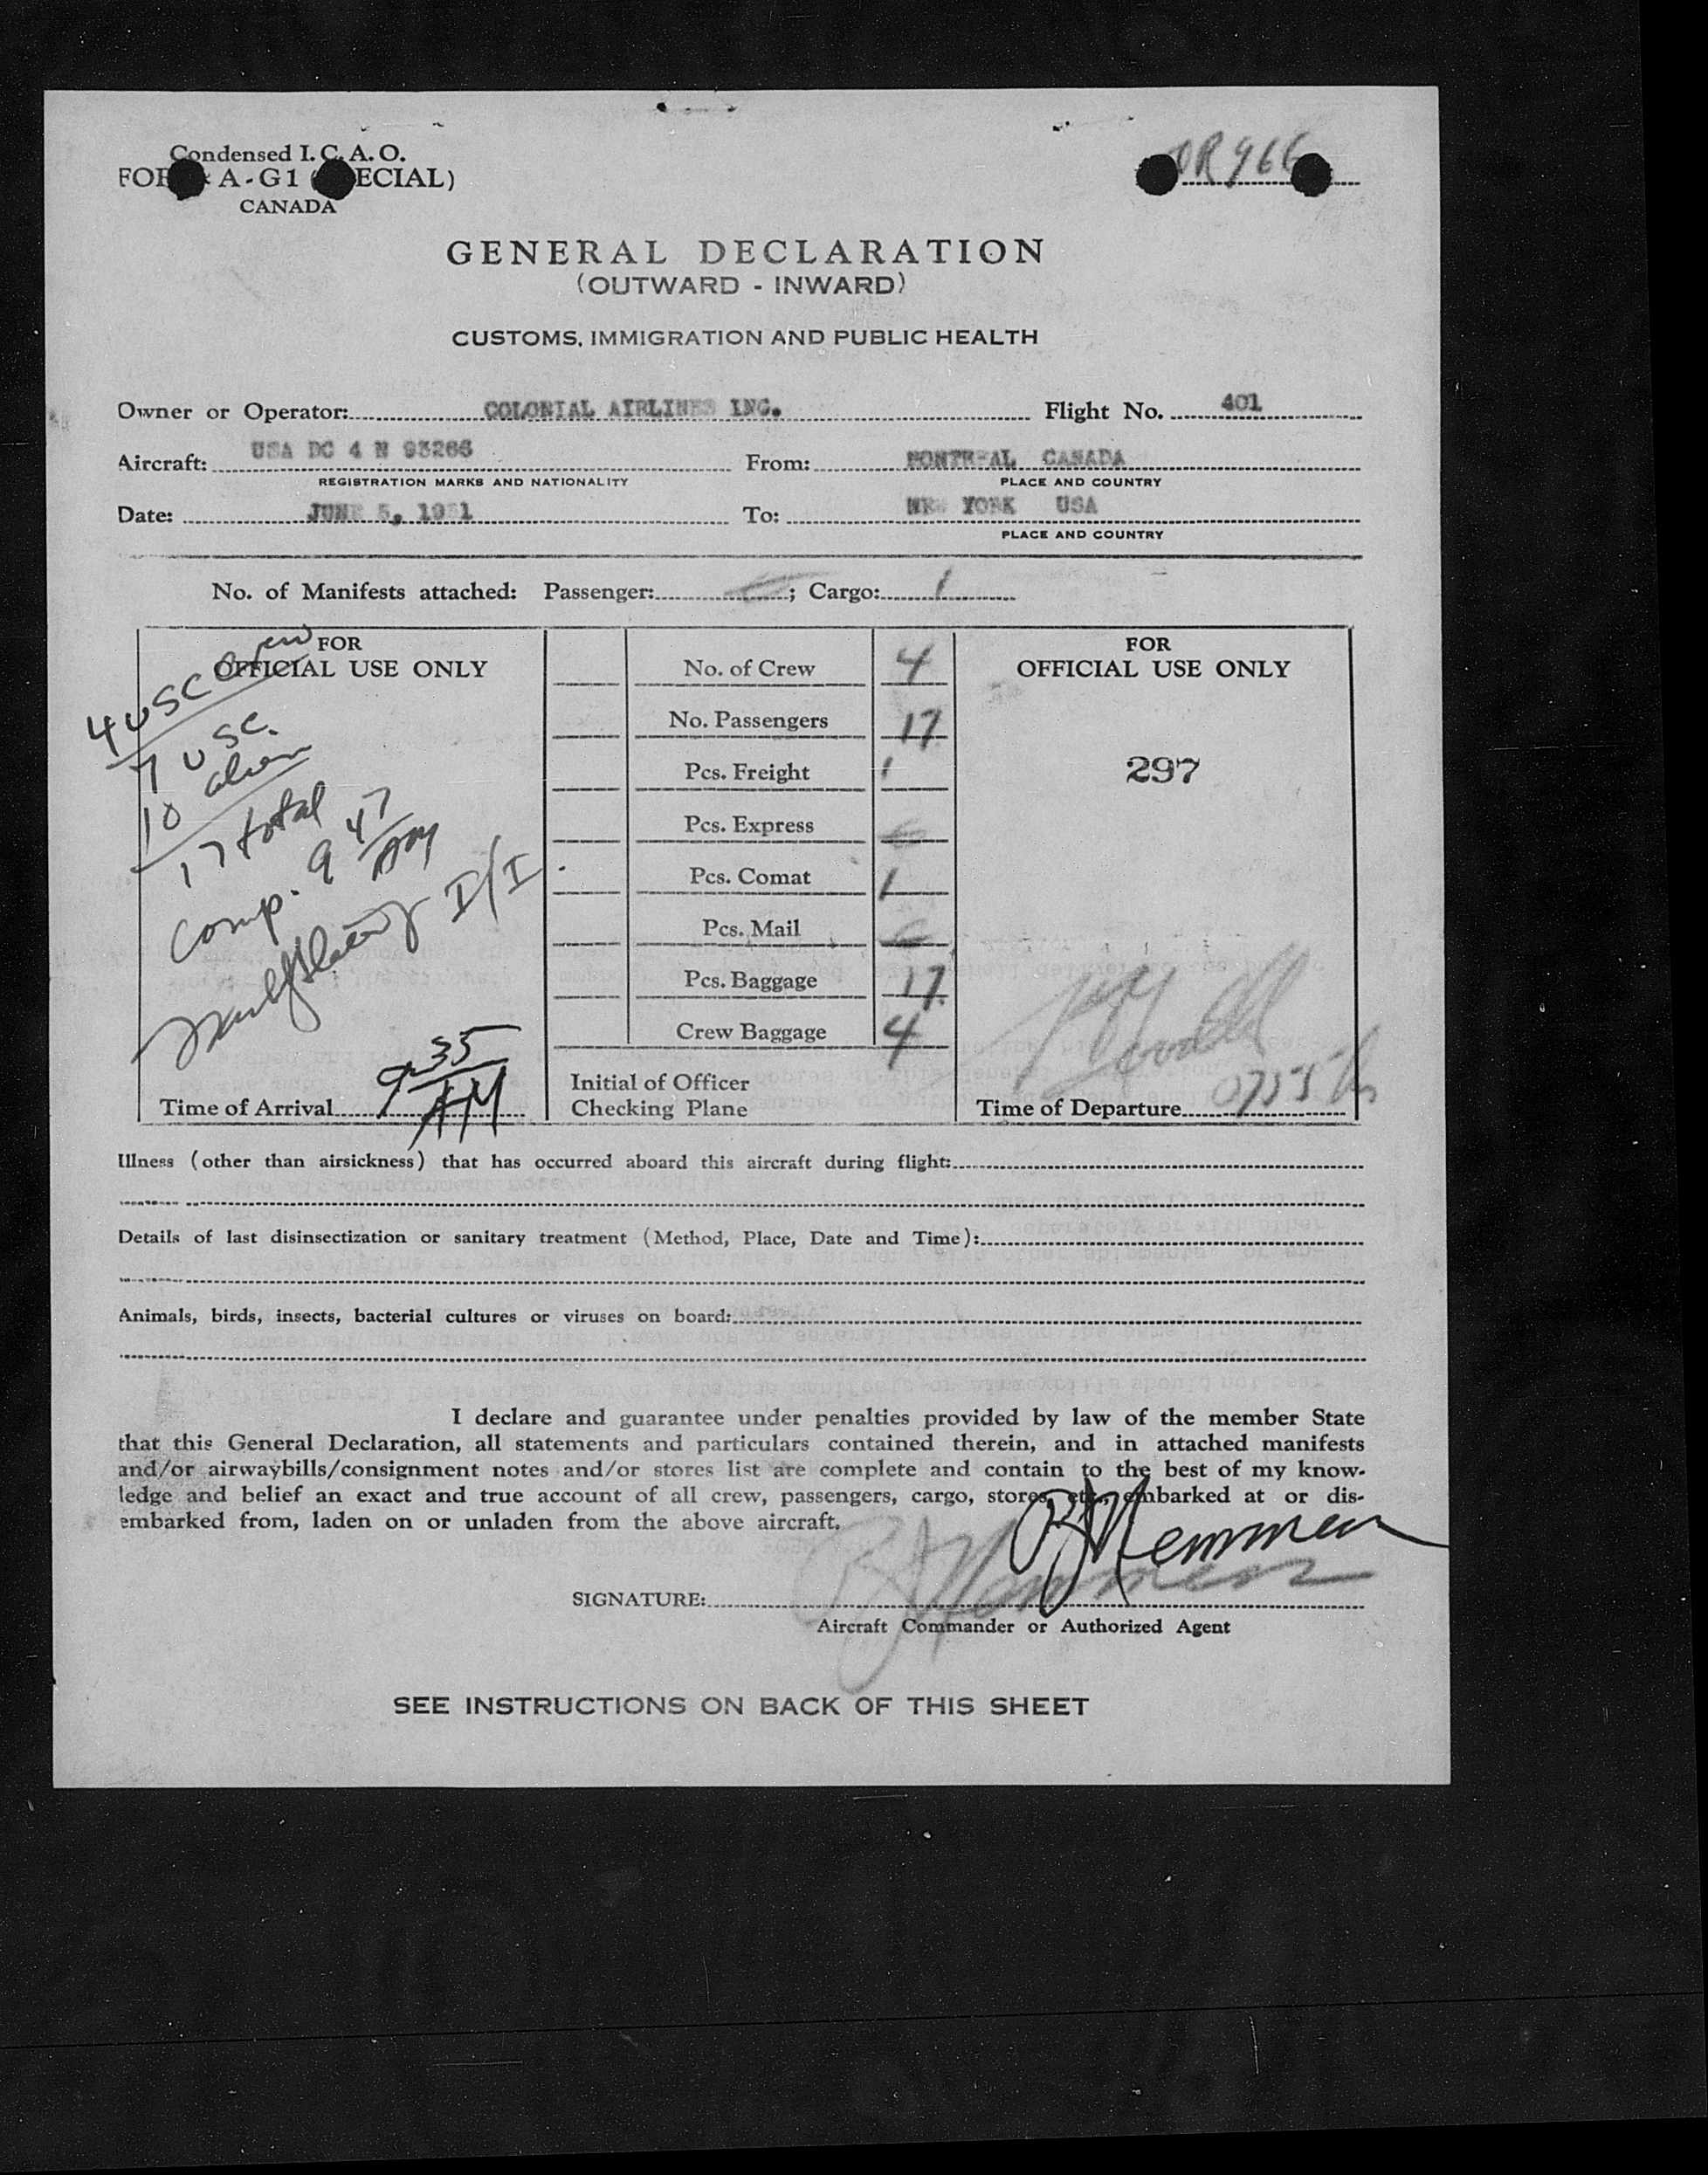 Condensed I. C. A. O.
A-G1 ( ECIAL)
CANADA
GENERAL DECLARATION
(OUTWARD - INWARD)
CUSTOMS, IMMIGRATION AND PUBLIC HEALTH
Owner or Operator: COLONIAL AIRLINES INC. Flight No. 401
Aircraft: USA DC 4 N 93266 From: MONTREAL CANADA
REGISTRATION MARKS AND NATIONALITY PLACE AND COUNTRY
Date: JUNE 5, 1951 To: NEW YORK USA
PLACE AND COUNTRY
No. of Manifests attached: Passenger: ; Cargo: 1
FOR
OFFICIAL USE ONLY
4 USC Crew
7 USC.
10 alien
17 total
Comp. 9 47 AM
I/I
Time of Arrival 9 35 AM
No. of Crew 4
No. Passengers 17
Pcs. Freight 1
Pcs. Express
Pcs. Comat 1
Pcs. Mail
Pcs. Baggage 17
Crew Baggage 4
Initial of Officer
Checking Plane
FOR
OFFICIAL USE ONLY
297
Time of Departure
Illness (other than airsickness) that has occurred aboard this aircraft during flight:
Details of last disinsectization or sanitary treatment (Method, Place, Date and Time):
Animals, birds, insects, bacterial cultures or viruses on board:
I declare and guarantee under penalties provided by law of the member State
that this General Declaration, all statements and particulars contained therein, and in attached manifests
and/or airwaybills/consignment notes and/or stores list are complete and contain to the best of my know-
ledge and belief an exact and true account of all crew, passengers, cargo, stores, etc., embarked at or dis-
embarked from, laden on or unladen from the above aircraft.
SIGNATURE:
Aircraft Commander or Authorized Agent
SEE INSTRUCTIONS ON BACK OF THIS SHEET